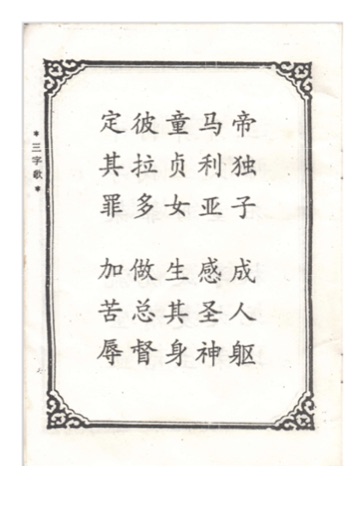 帝独子 成人躯
马利亚 感圣神
童贞女 生其身
彼拉多 做总督
定其罪 加苦辱
*三字歌*